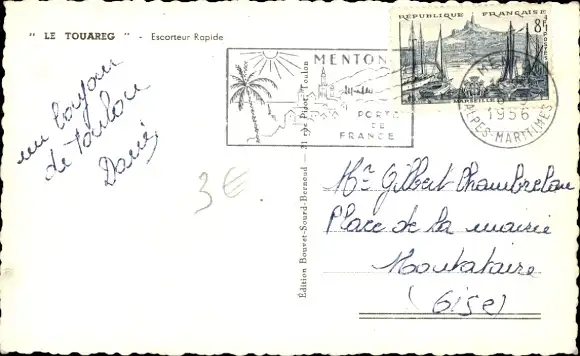 " LE TOUAREG " - Escorteur Rapide
un bonjour
de Toulon
3€
Édition Bouvet-Sourd-Bernaud — 21 rue Picot, Toulon
MENTON
PORTE
DE
FRANCE
RÉPUBLIQUE FRANÇAISE
8F
MARSEILLE
1956
ALPES-MARITIMES
Mr Gilbert Chambrelan
Place de la mairie
Montataire
(Oise)